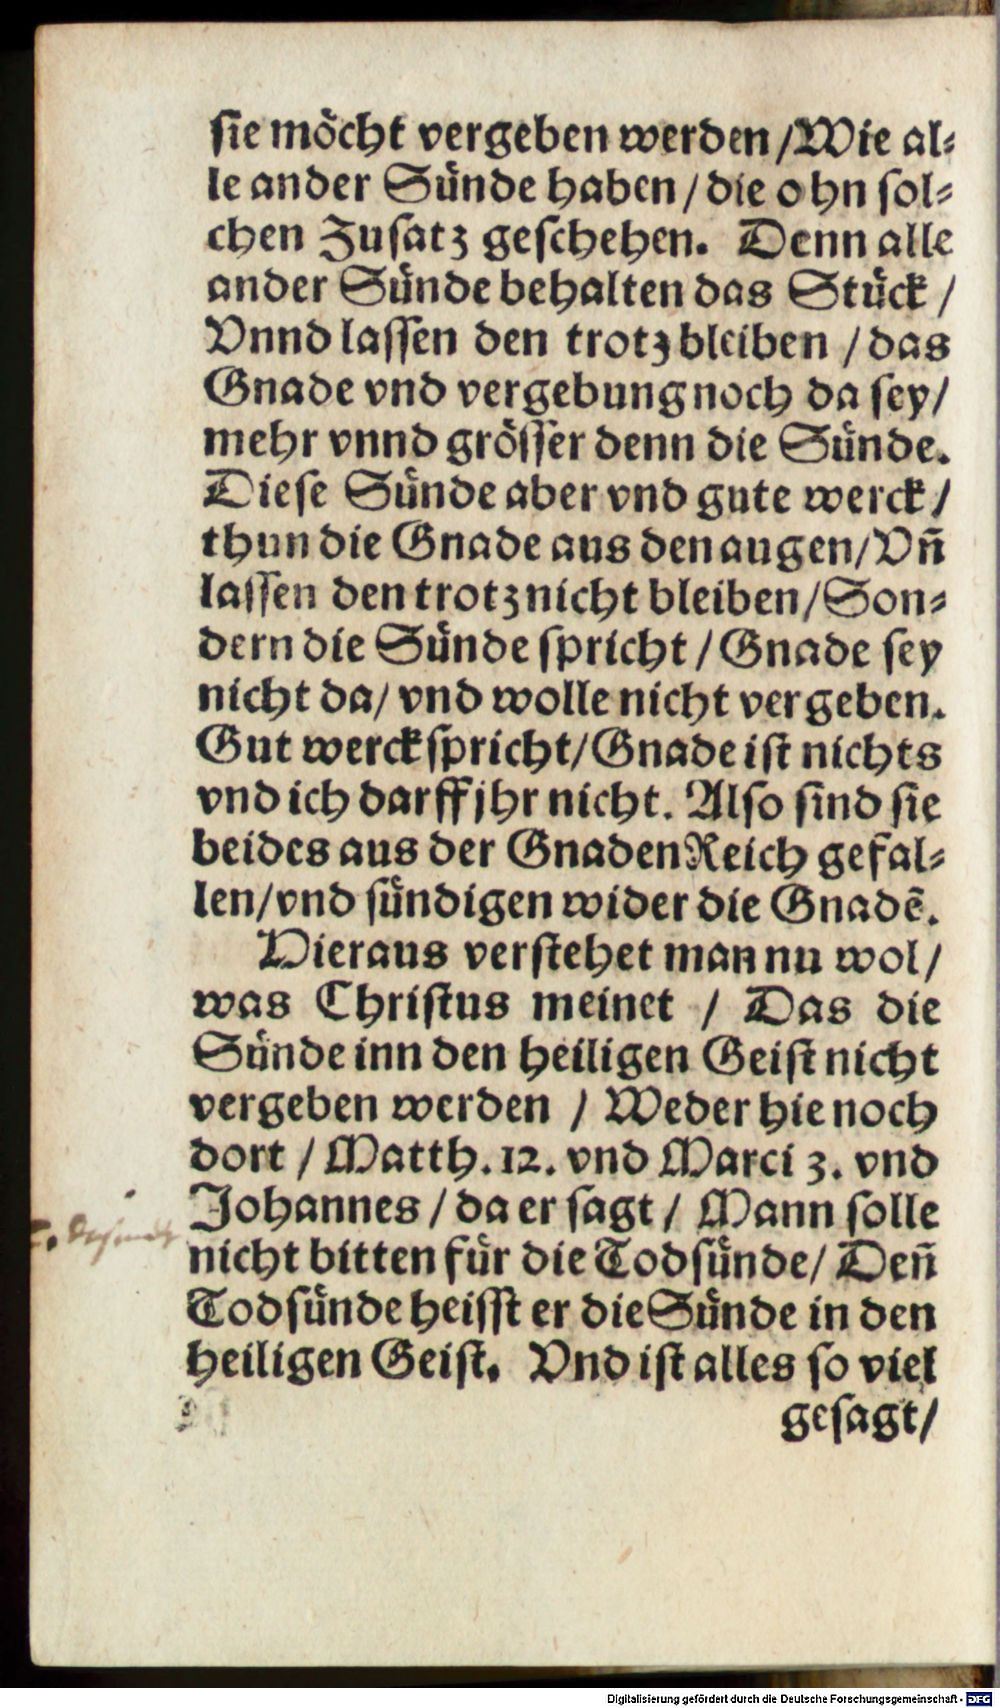 sie möcht vergeben werden / Wie al⸗
le ander Sünde haben / die ohn sol⸗
chen Zusatz geschehen. Denn alle
ander Sünde behalten das Stück /
Vnnd lassen den trotz bleiben / das
Gnade vnd vergebung noch da sey /
mehr vnnd grösser denn die Sünde.
Diese Sünde aber vnd gute werck /
thun die Gnade aus den augen / Vn̄
lassen den trotz nicht bleiben / Son⸗
dern die Sünde spricht / Gnade sey
nicht da / vnd wolle nicht vergeben.
Gut werck spricht / Gnade ist nichts
vnd ich darff jhr nicht. Also sind sie
beides aus der Gnaden Reich gefal⸗
len / vnd sündigen wider die Gnadē.
Hieraus verstehet man nu wol /
was Christus meinet / Das die
Sünde inn den heiligen Geist nicht
vergeben werden / Weder hie noch
dort / Matth. 12. vnd Marci 3. vnd
Johannes / da er sagt / Mann solle
nicht bitten für die Todsünde / Den̄
Todsünde heisst er die Sünde in den
heiligen Geist. Vnd ist alles so viel
gesagt /
Digitalisierung gefördert durch die Deutsche Forschungsgemeinschaft - DFG